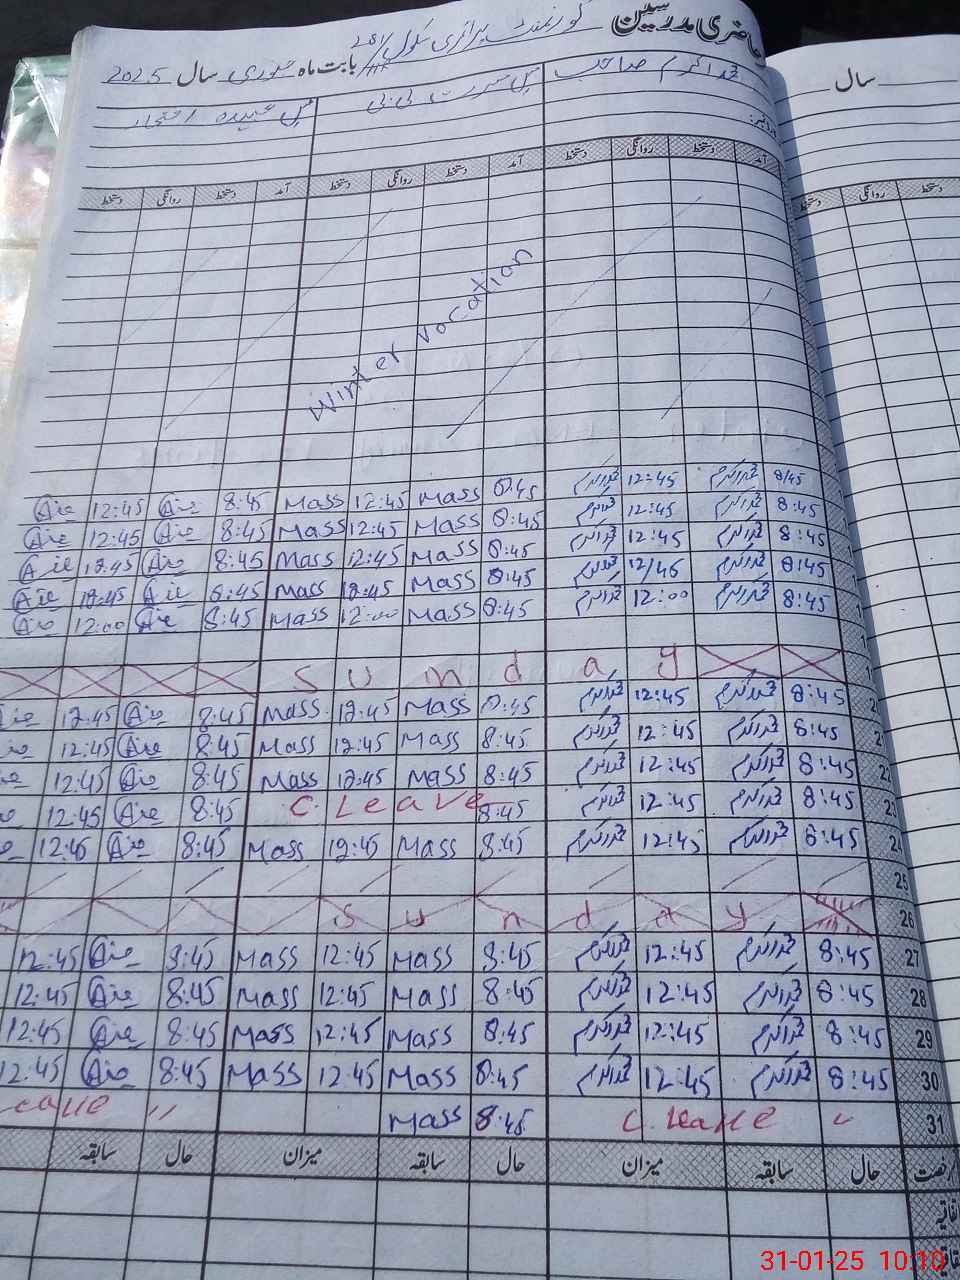 حاضری مدرسین گورنمنٹ پرائمری سکول 281/ بابت ماہ جنوری سال 2025
سال
محمد اکرم صاحب مس مسرت بی بی مس
آمد دستخط روانگی دستخط آمد دستخط روانگی دستخط آمد دستخط روانگی دستخط
روانگی دستخط
Winter vocation
8/45 محمد اکرم 12:45 محمد اکرم 8:45 Mass 12:45 Mass 8:45 12:45
8:45 محمد اکرم 12:45 محمد اکرم 8:45 Mass 12:45 Mass 8:45 12:45
8:45 محمد اکرم 12:45 محمد اکرم 8:45 Mass 12:45 Mass 8:45 12:45
8:45 محمد اکرم 12/45 محمد اکرم 8:45 Mass 12:45 Mass 8:45 12:45
8:45 محمد اکرم 12:00 محمد اکرم 8:45 Mass 12:00 Mass 8:45 12:00
Sunday
8:45 محمد اکرم 12:45 محمد اکرم 8:45 Mass 12:45 Mass 8:45 12:45
8:45 محمد اکرم 12:45 محمد اکرم 8:45 Mass 12:45 Mass 8:45 12:45
22 8:45 محمد اکرم 12:45 محمد اکرم 8:45 Mass 12:45 Mass 8:45 12:45
23 8:45 محمد اکرم 12:45 محمد اکرم 8:45 C. Leave 8:45 12:45
24 8:45 محمد اکرم 12:45 محمد اکرم 8:45 Mass 12:45 Mass 8:45 12:45
25
26 Sunday
27 8:45 محمد اکرم 12:45 محمد اکرم 8:45 Mass 12:45 Mass 8:45 12:45
28 8:45 محمد اکرم 12:45 محمد اکرم 8:45 Mass 12:45 Mass 8:45 12:45
29 8:45 محمد اکرم 12:45 محمد اکرم 8:45 Mass 12:45 Mass 8:45 12:45
30 8:45 محمد اکرم 12:45 محمد اکرم 8:45 Mass 12:45 Mass 8:45 12:45
31 C. Leave 8:45 Mass
حال سابقہ میزان حال سابقہ میزان حال سابقہ
31-01-25 10:10